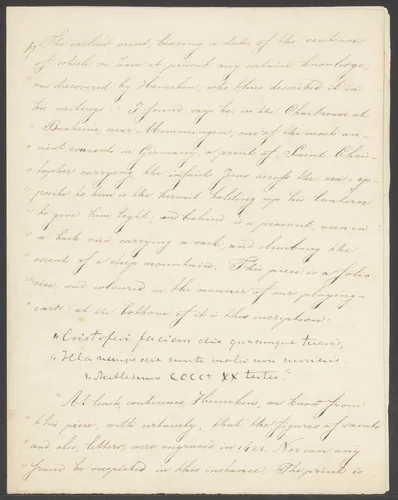 The earliest print, bearing a date, of the existence
of which we have at present any certain knowledge,
was discovered by Heineken, who thus described it in
his writings: "I found, says he, in the Chartreuse at
" Buxheim, near Memmingen, one of the most an-
" cient convents in Germany, a print of Saint Chris-
" topher carrying the infant Jesus across the sea: op-
" posite to him is the hermit holding up his lantern
" to give him light; and behind is a peasant, seen in
" a back view, carrying a sack, and climbing the
" ascent of a steep mountain. This piece is a folio
" size, and coloured in the manner of our playing-
" cards; at the bottom of it is this inscription:
" Cristofori faciem die quacunque tueris,
" Illa nempe die morte mala non morieris.
" Millesimo CCCCº XX tertio."
"At least, continues Heineken, we know from
" this piece, with certainty, that the figures of saints
" and also, letters, were engraved in 1423. Nor can any
" fraud be suspected in this instance. The print is